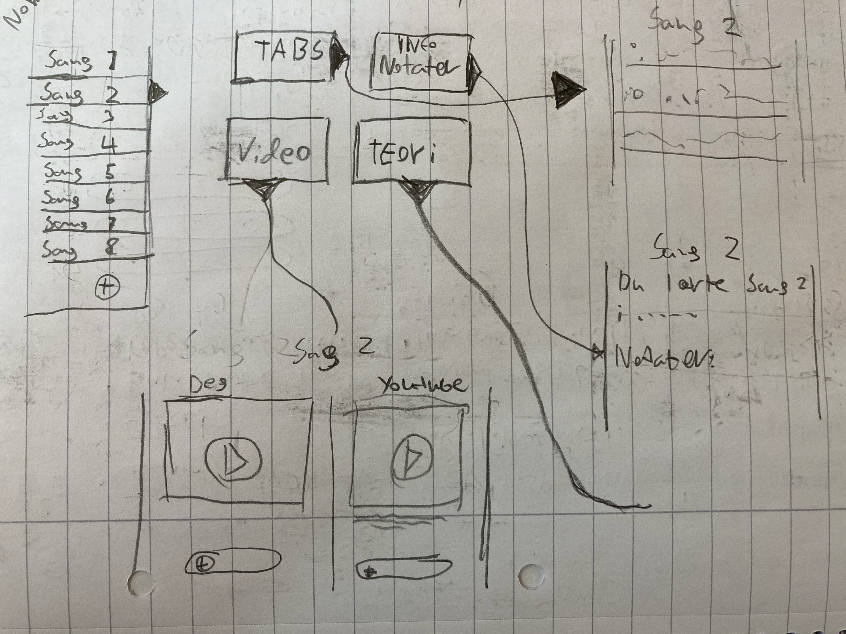 Sang 1
Sang 2
Sang 3
Sang 4
Sang 5
Sang 6
Sang 7
Sang 8
+
TABS
Info
Notater
Video
TEORi
Sang 2
Sang 2
Du lærte Sang 2
i .....
Notater:
Sang 2
Deg
Youtube
+
+